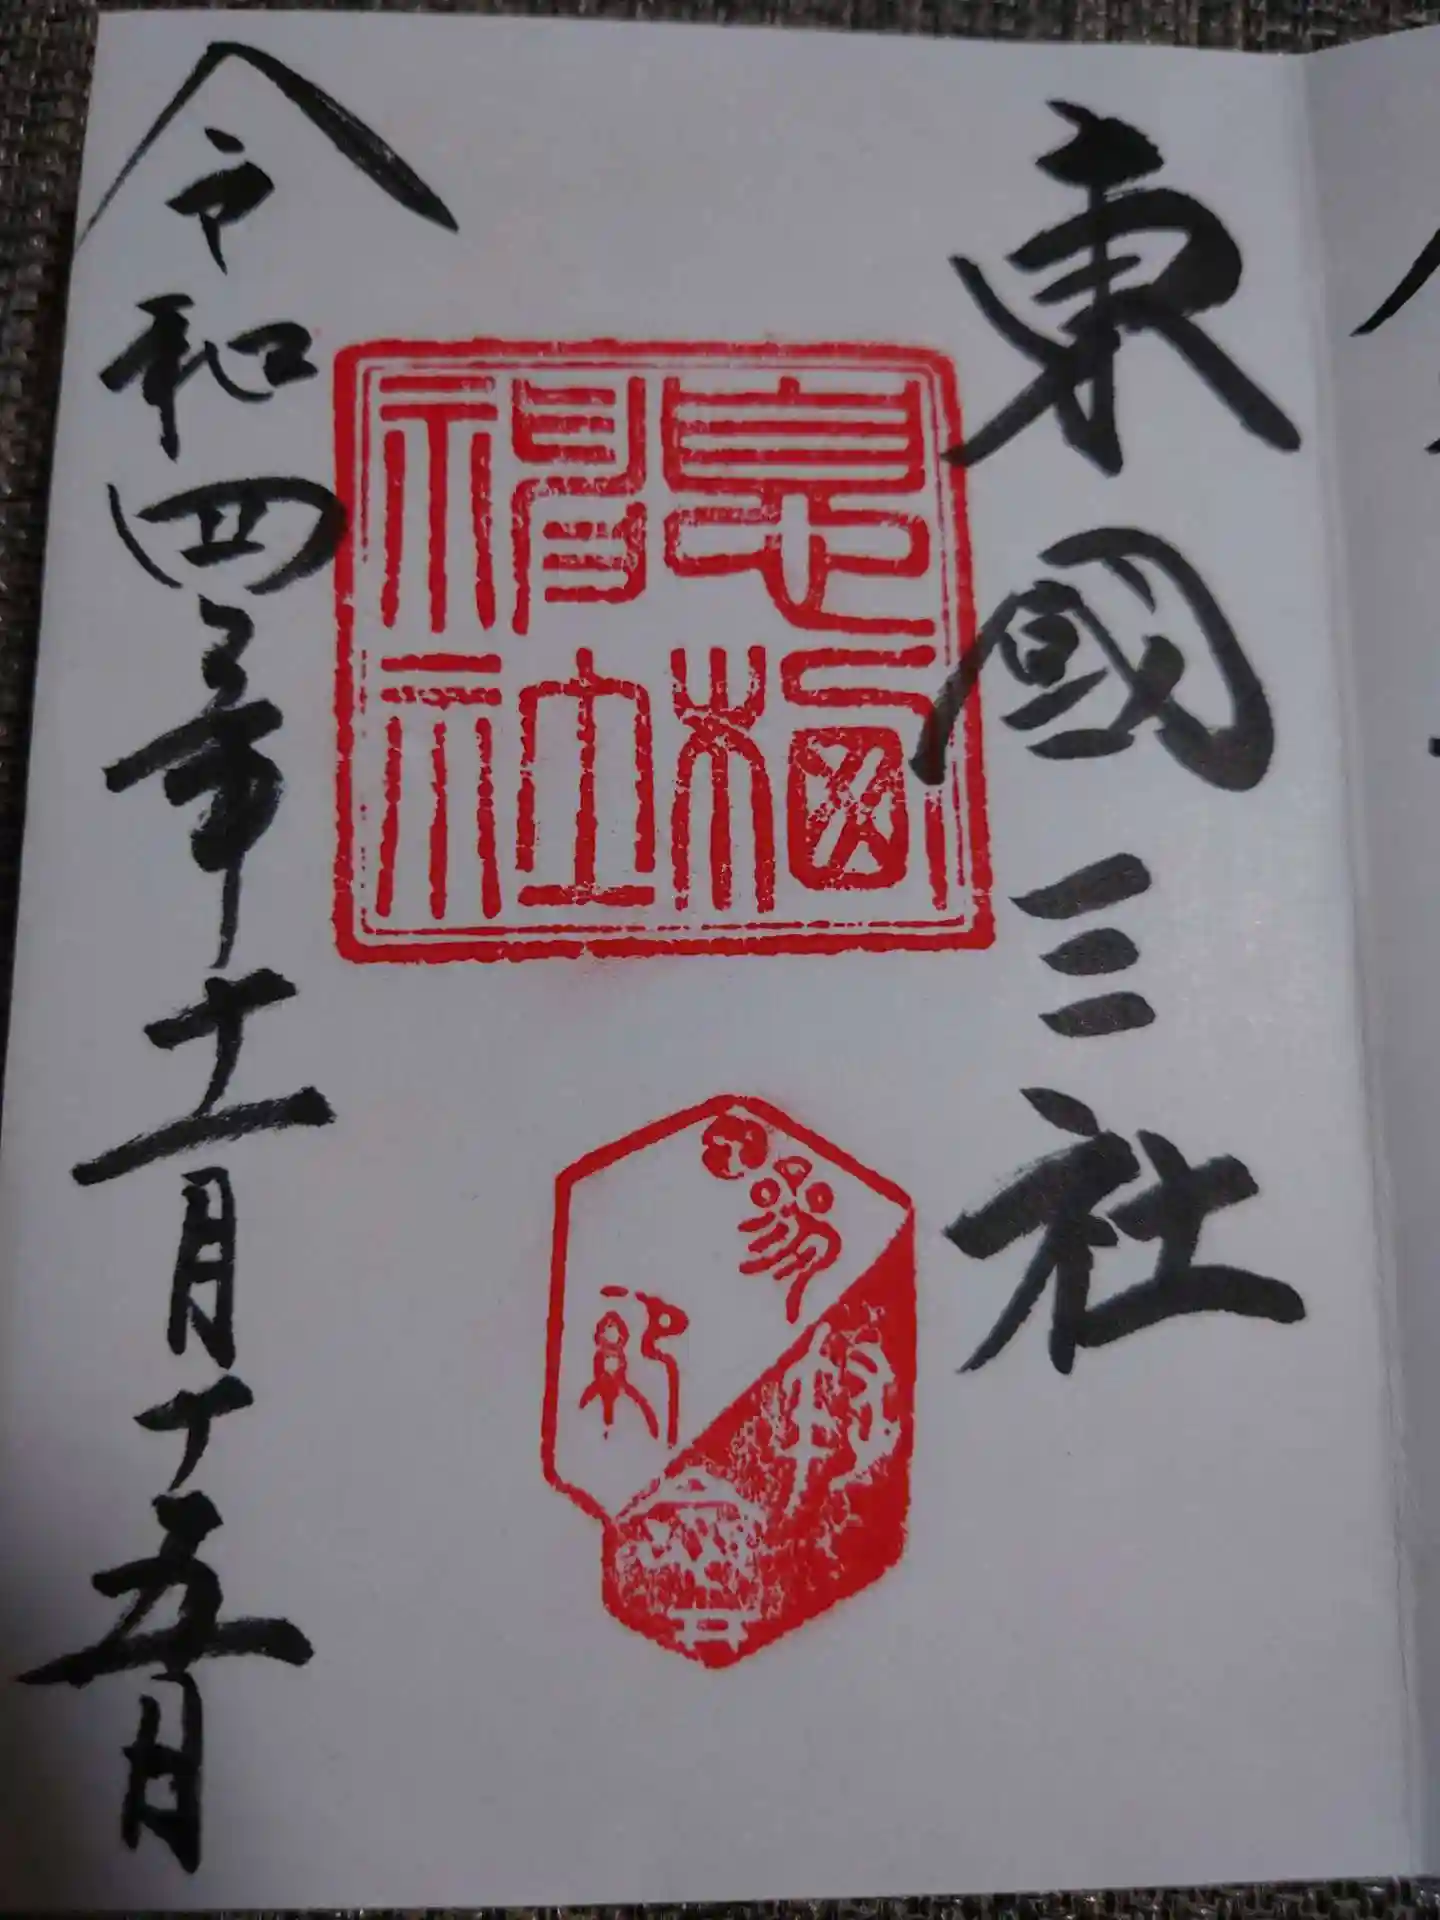 東國三社
息栖
神社
令和四年十一月十五日